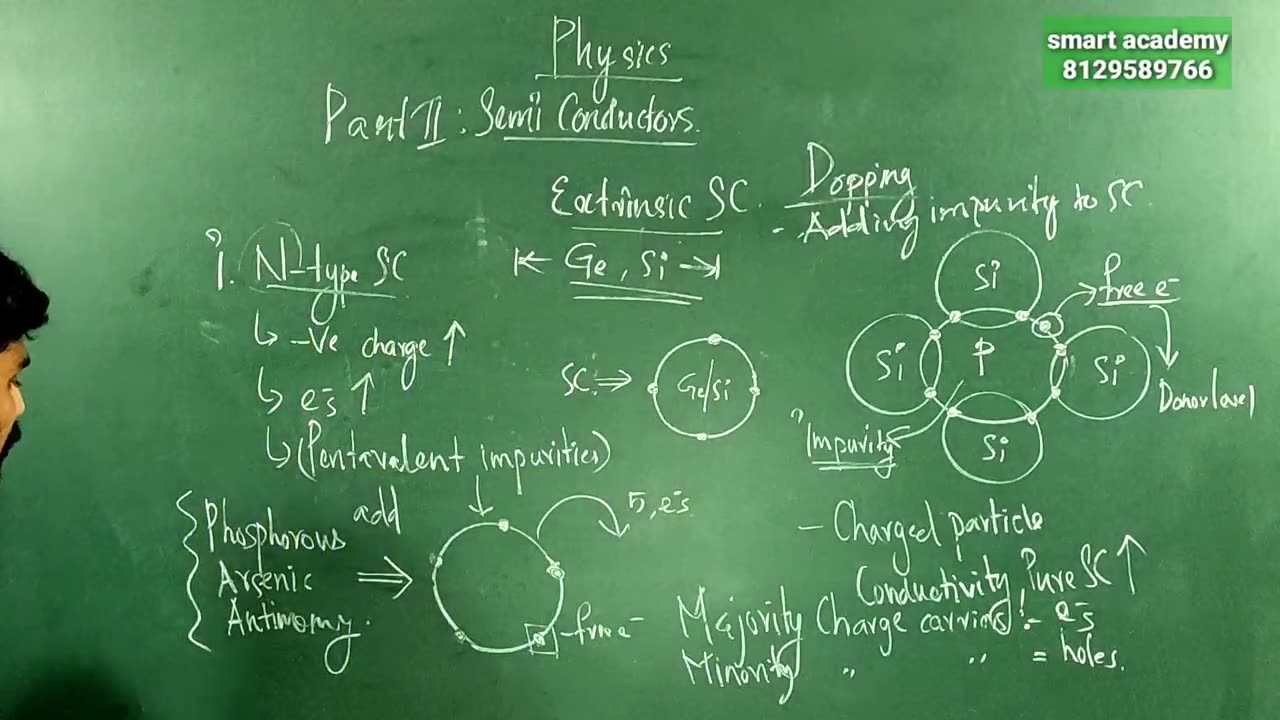 smart academy
8129589766
Physics
Part II : Semi Conductors.
Extrinsic SC.
Dopping
- Adding impurity to SC.
|← Ge, Si →|
i. N-type SC
↳ -Ve charge ↑
↳ e⁻s ↑
↳ (Pentavalent impurities)
Phosphorous
Arsenic
Antimony.
add ⇒
5, e⁻s.
free e⁻
SC ⇒
Ge/Si
Si
Si
P
Si
Si
free e⁻
Donor level
Impurity
- Charged particle
Conductivity, Pure SC ↑
Majority Charge carriers :- e⁻s
Minority " " = holes.